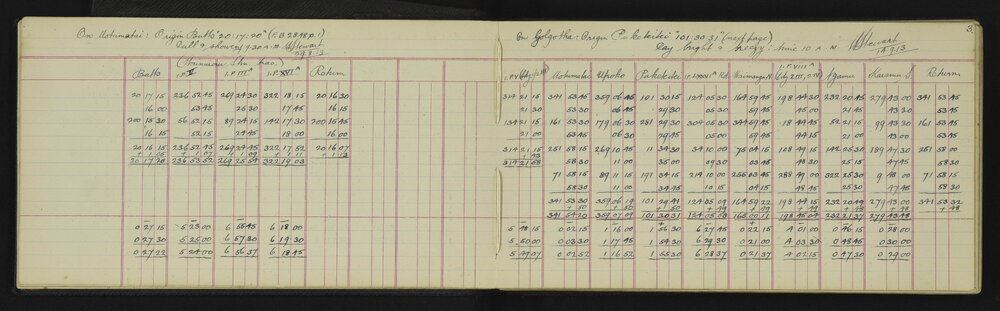 On Motumatai: Origin Batts "20:17:20" (F.B. 2848 p.1)
Dull & showery 9.30 A.M. HStewart
Batts I.P.V I.P.III^A I.P.XVI^A Return
20 17 15 236 52 45 269 24 30 322 18 15 20 16 30
16 00 53 45 25 30 17 45 16 15
200 15 30 56 52 15 89 24 15 142 17 30 200 15 45
16 15 52 15 24 45 18 00 16 00
20 16 15 236 52 45 269 24 45 322 17 52 20 16 07
+ 1 05 + 1 07 + 1 09 + 1 11 + 1 13
20 17 20 236 53 52 269 25 54 322 19 03
0 27 15 5 23 00 6 55 45 6 18 00
0 27 30 5 25 00 6 57 30 6 19 30
0 27 22 5 24 00 6 56 37 6 18 45
3
On Golgotha: Origin Pukeketei "101:30:31" (next page)
Day bright & breezy: time 10 A.M. HStewart
Motumatai Upoko Pukeketei Return
314 21 15 341 53 45 359 06 45 101 30 15 124 05 30 164 59 45 198 44 30 232 20 45 279 43 00 341 53 45
21 30 53 30 06 45 29 30 05 30 59 45 45 00 21 45 43 30 53 15
134 21 15 161 53 30 179 06 30 281 29 30 304 05 30 344 59 45 18 44 45 52 21 15 99 43 30 161 53 45
21 00 53 45 06 30 29 45 05 00 59 45 44 15 21 00 43 00 53 45
314 21 15 251 58 15 269 10 45 11 34 30 34 10 00 75 04 15 108 49 15 142 25 30 189 47 30 251 58 00
314 21 58 58 30 11 00 35 00 09 30 03 45 48 30 25 15 47 45 58 30
71 58 15 89 11 15 191 34 15 214 10 00 255 03 45 288 49 00 322 25 30 9 48 00 71 58 15
58 30 11 00 34 45 10 15 04 15 48 45 25 30 47 45 58 30
341 53 30 359 06 19 101 29 41 124 05 09 164 59 22 198 44 15 232 20 49 279 43 00 341 53 32
+ 50 + 50 + 50 + 49 + 49 + 49 + 48 + 48 + 48
341 54 20 359 07 09 101 30 31 124 05 58 165 00 11 198 45 04 232 21 37 279 43 48
5 48 15 0 02 15 1 16 00 1 56 30 6 27 45 0 22 15 4 01 00 0 46 15 0 28 00
5 50 00 0 03 30 1 17 45 1 54 30 6 29 30 0 21 00 4 03 30 0 48 45 0 30 00
5 49 07 0 02 52 1 16 52 1 55 30 6 28 37 0 21 37 4 02 15 0 47 30 0 29 00